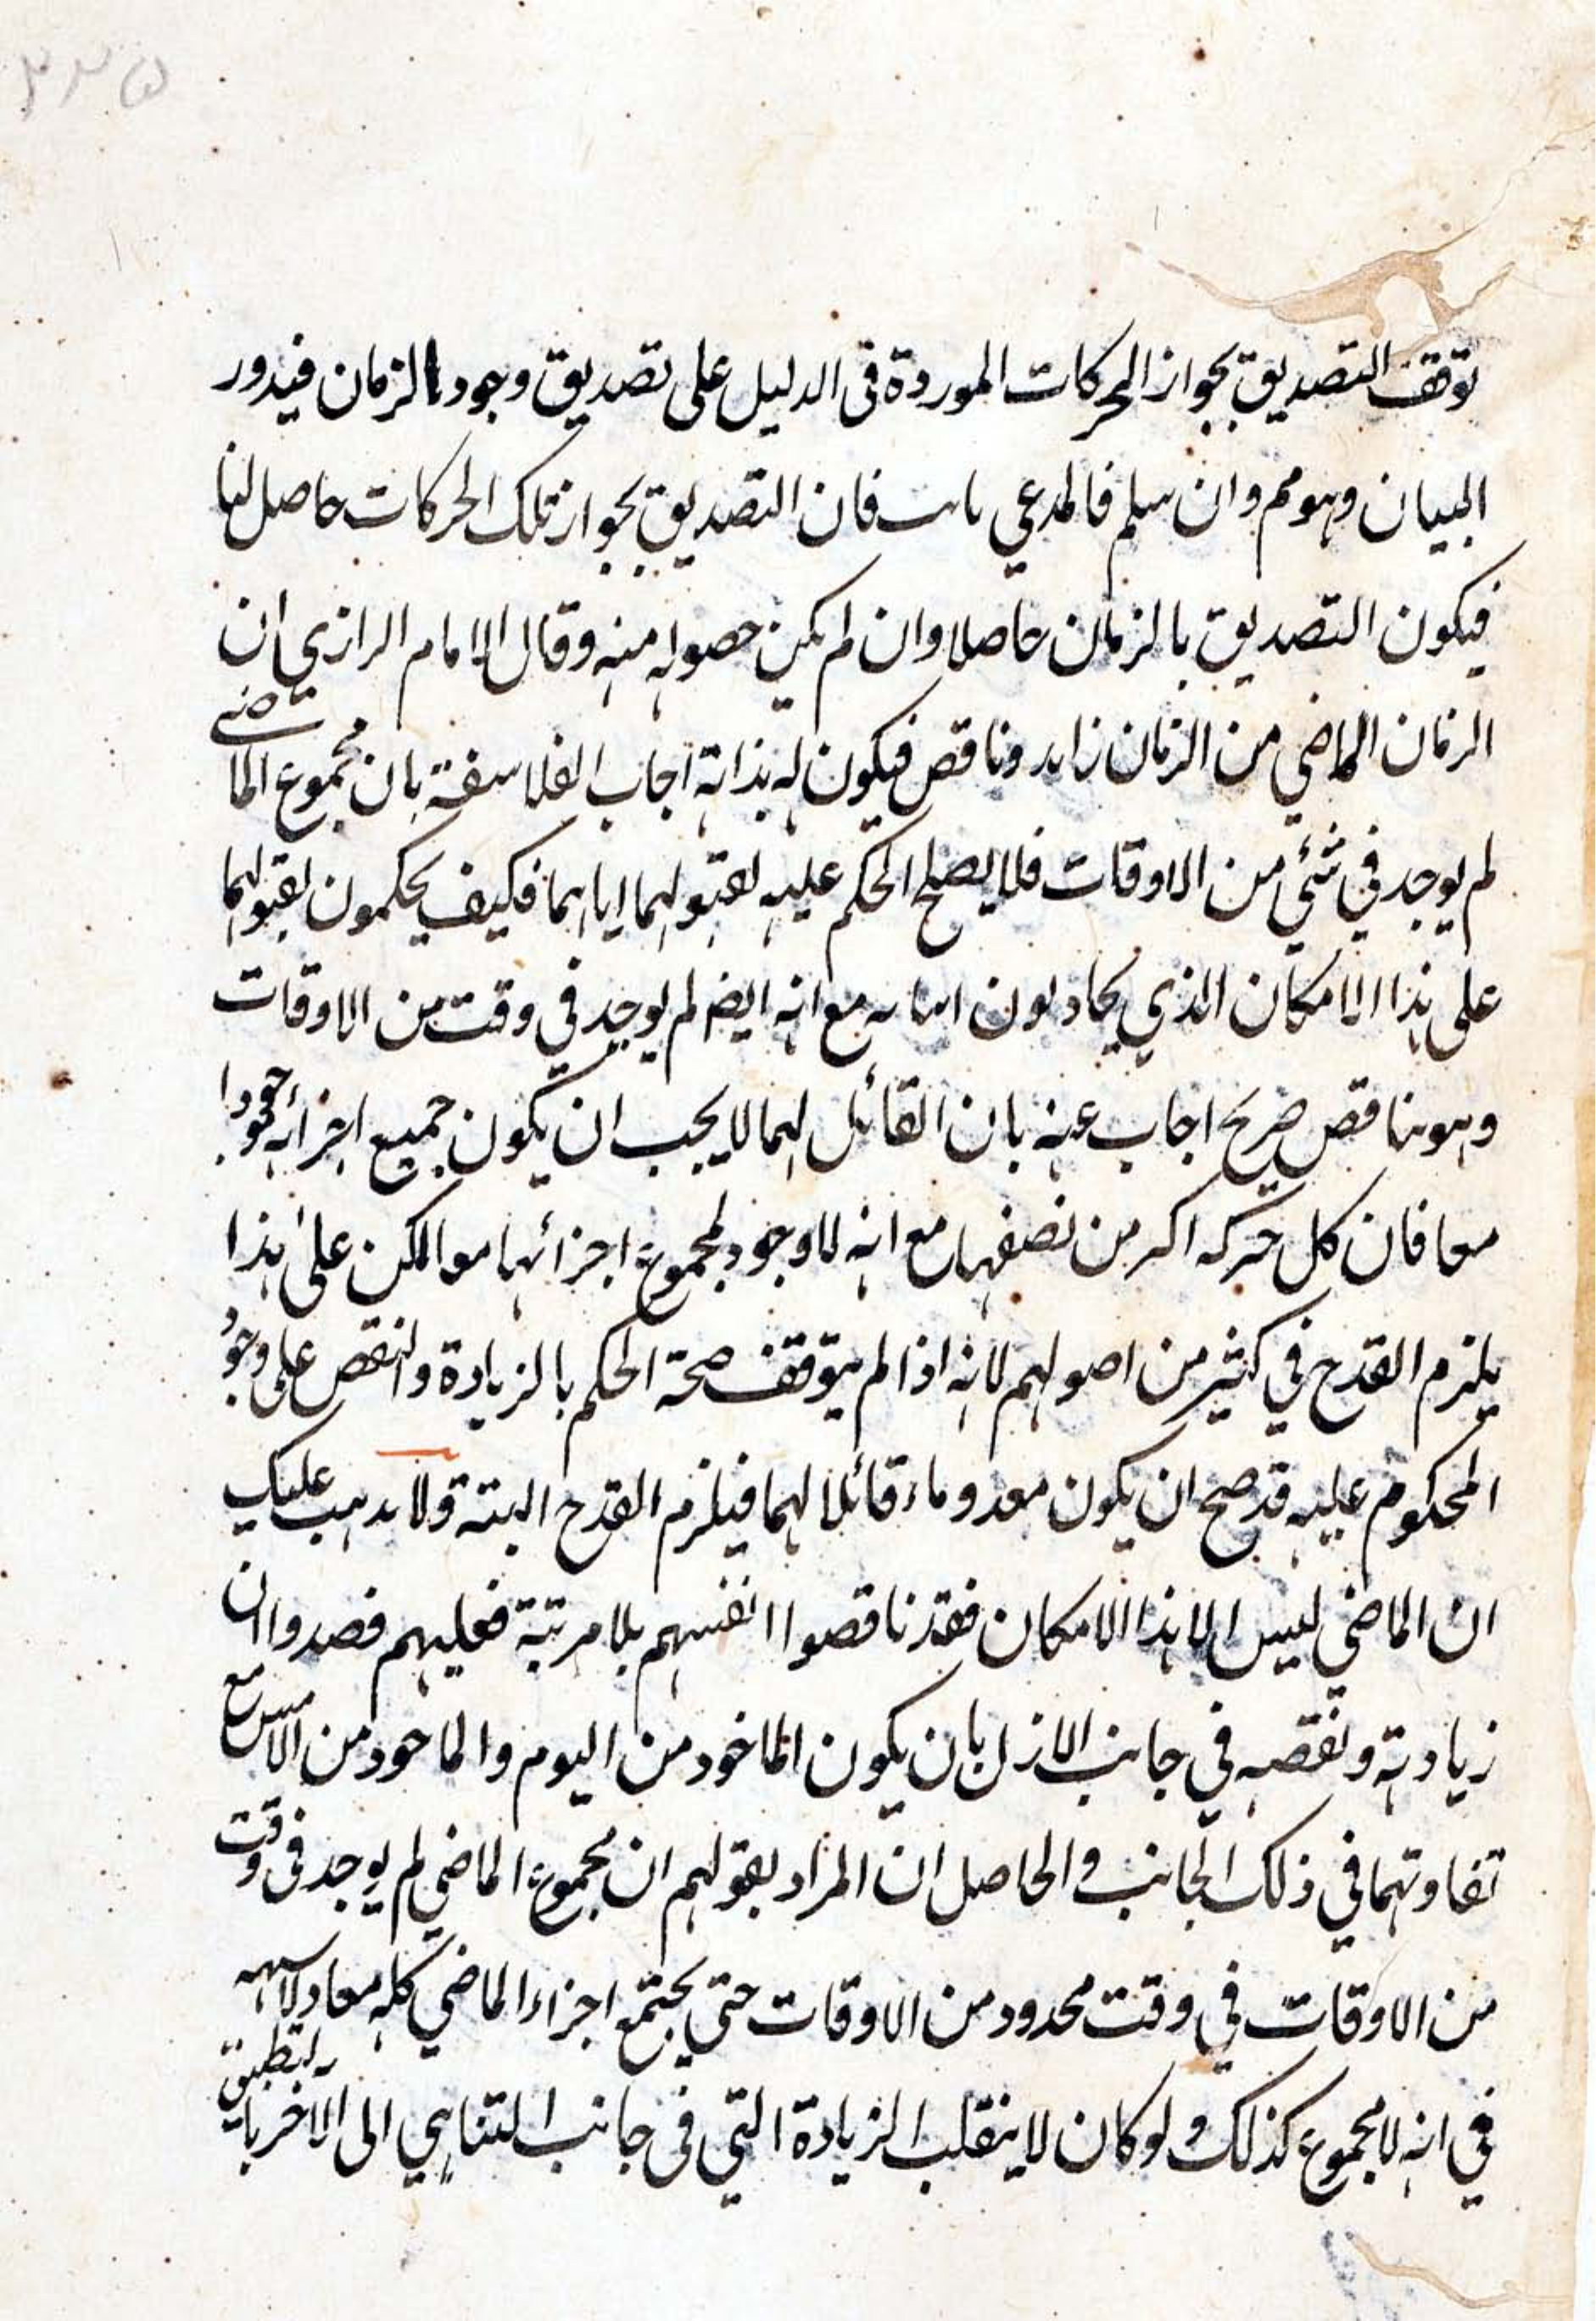 توقف التصديق بجواز الحركات الموردة فى الدليل على تصديق وجود الزمان فيدور
البيان وهو مم وان سلم فالمدعي ثابت فان التصديق بجواز تلك الحركات حاصل لنا
فيكون التصديق بالزمان حاصلا وان لم يكن حصوله منه وقال الامام الرازي ان
الزمان الماضي من الزمان زايد وناقص فيكون له بذاته اجاب الفلاسفة بان مجموع الماضي
لم يوجد في شئي من الاوقات فلا يصلح الحكم عليه لقبولهما اياهما فكيف يحكمون بقبولهما
على هذا الامكان الذي يحاولون اثباته مع انه ايضا لم يوجد في وقت من الاوقات
وهو تناقض صريح اجاب عنه بان القائل لهما لا يجب ان يكون جميع اجزائه موجودا
معا فان كل حركة اكبر من نصفها مع انه لا وجود لمجموع اجزائها معا لكن على هذا
يلزم القدح في كثير من اصولهم لانه اذا لم يتوقف صحة الحكم بالزيادة والنقص على وجود
المحكوم عليه قد صح ان يكون معدوماء قائلا لهما فيلزم القدح البتة ولا يذهب عليك
ان الماضي ليس الا هذا الامكان فقد ناقضوا انفسهم بلا مرتبة فعليهم قصدوا ان
زيادته ونقصه في جانب الازل بان يكون الماخود من اليوم والماخود من الامس مع
تفاوتهما في ذلك الجانب والحاصل ان المراد بقولهم ان مجموع الماضي لم يوجد فى وقت
من الاوقات في وقت محدود من الاوقات حتى يجتمع اجزاء الماضي كله معا ولا
في انه لا مجموع كذلك ولو كان لا ينقلب الزيادة التي فى جانب التناهي الى الاخر بالتطبيق